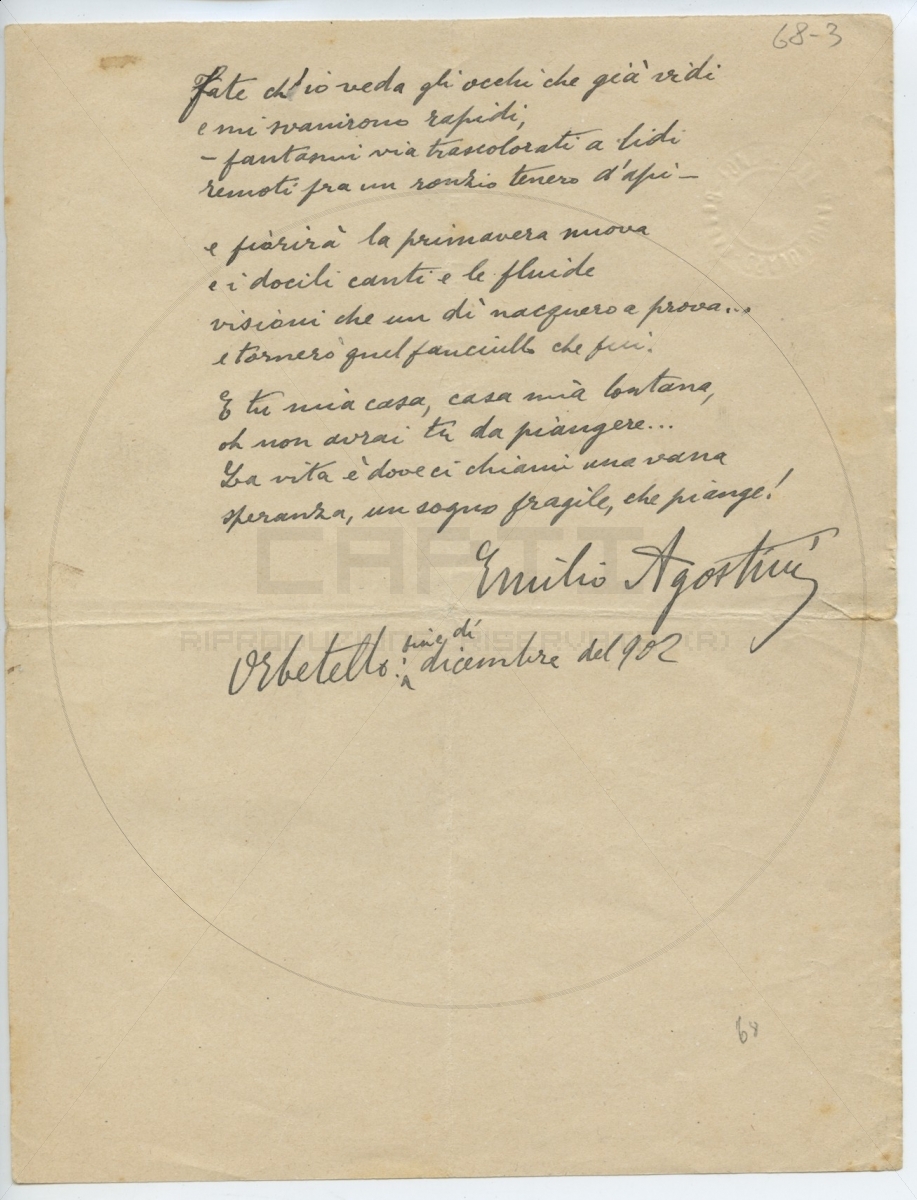 68-3
Fate ch'io veda gli occhi che già vidi
e mi svanirono rapidi,
– fantasmi via trascolorati a lidi
remoti fra un ronzio tenero d'api –
e fiorirà la primavera nuova
e i docili canti e le fluide
visioni che un dì nacquero a prova...
e tornerò quel fanciullo che fui.
E tu mia casa, casa mia lontana,
oh non avrai tu da piangere...
La vita è dove ci chiami una vana
speranza, un sogno fragile, che piange!
Emilio Agostini
CAPTI
RIPRODUZIONE RISERVATA (R)
fine di
Orbetello: dicembre del 902
68